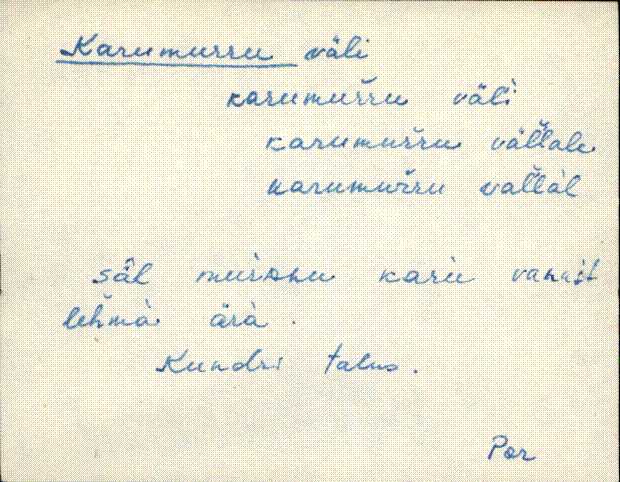 Karumurru väli
karumuřru väli
karumuřru vällale
karumuřru vällàl
säl murdnu karu vanast
lehmä ärä.
Kundri talus.
Por